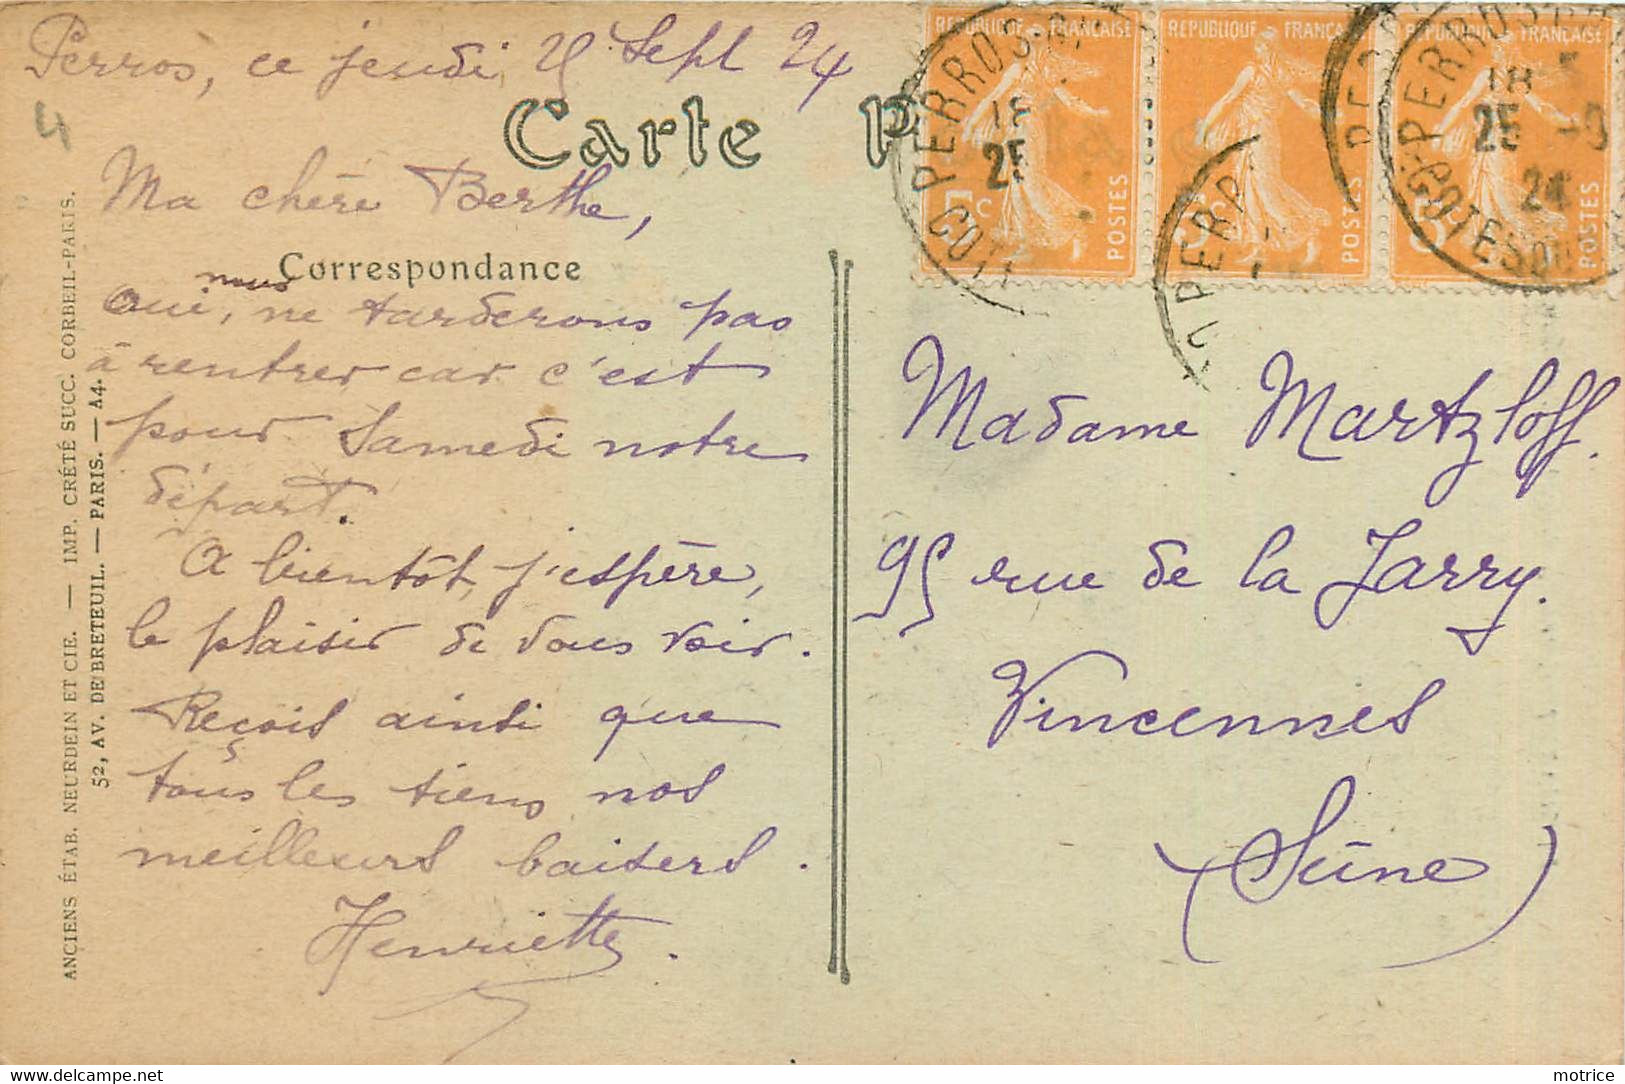 Perros, ce jeudi 25 Sept 24
4
Carte P
Ma chère Berthe,
Correspondance
nous
oui, ne tarderons pas
à rentrer car c'est
pour Samedi notre
départ.
A bientôt, j'espère,
le plaisir de vous voir.
Reçois ainsi que
tous les tiens nos
meilleurs baisers.
Henriette.
ANCIENS ÉTAB. NEURDEIN ET CIE. — IMP. CRÉTÉ SUCC. CORBEIL-PARIS.
52, AV. DE BRETEUIL. — PARIS. — A4.
REPUBLIQUE FRANÇAISE
5c POSTES
REPUBLIQUE FRANÇAISE
5c POSTES
REPUBLIQUE FRANÇAISE
5c POSTES
PERROS
18
25
COT
PERR
PERROS
18
25 -9
24
COTES DU
Madame Martzloff.
95 rue de la Jarry.
Vincennes
(Seine)
https://www.delcampe.net
motrice